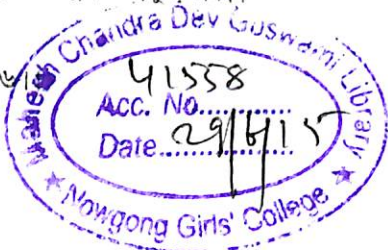 Mahesh Chandra Dev Goswami Library
41558
Acc. No............
Date 29/6/15
★ Nowgong Girls' College ★